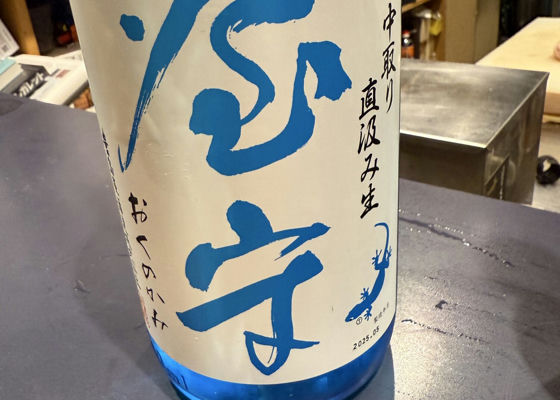 中取り
直汲み生
屋守
おくのかみ
2025.05